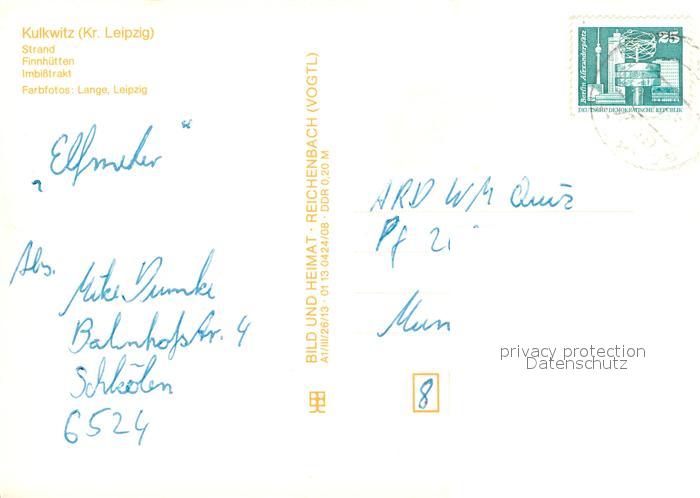 Kulkwitz (Kr. Leipzig)
Strand
Finnhütten
Imbißtrakt
Farbfotos: Lange, Leipzig
„Elfmeter"
Abs.
Mike Dumke
Bahnhofstr. 4
Schkölen
6524
BILD UND HEIMAT · REICHENBACH (VOGTL)
A1/III/26/13 · 01 13 0424/08 · DDR 0,20 M
25
Berlin, Alexanderplatz
DEUTSCHE DEMOKRATISCHE REPUBLIK
ARD WM Quiz
Pf 21
Mün
8
privacy protection
Datenschutz